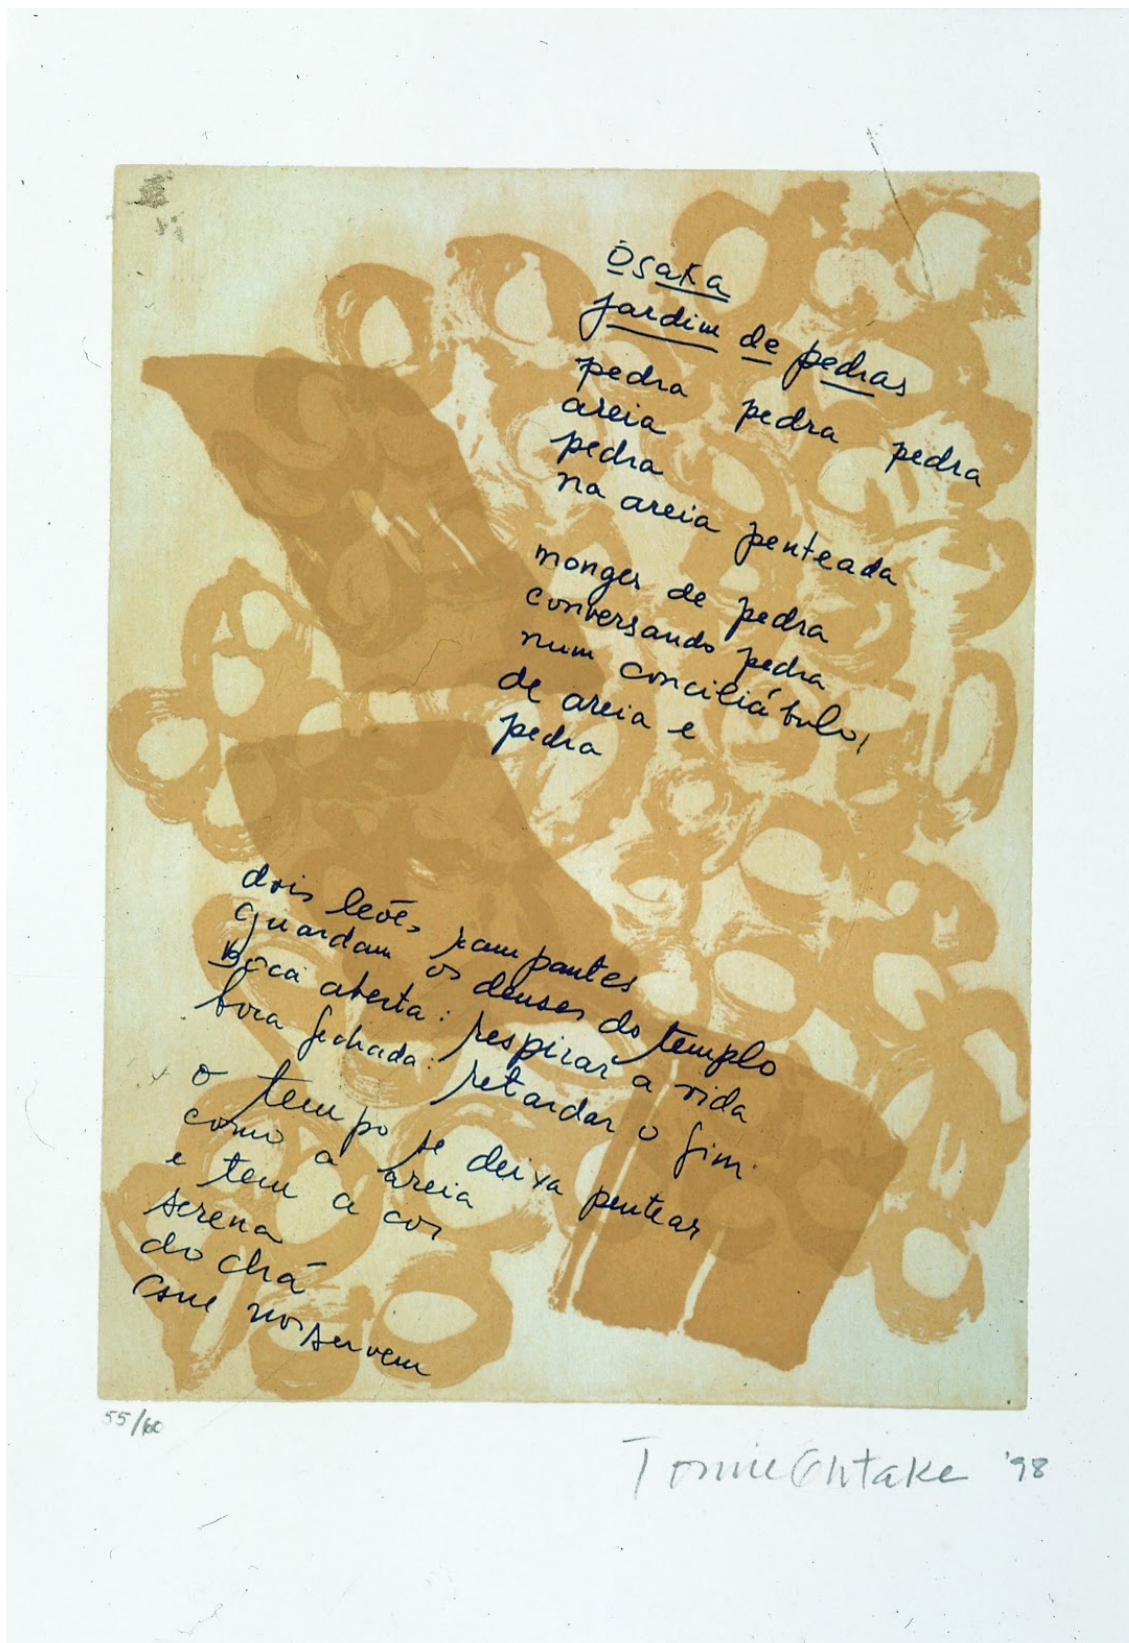 ōsaka
jardim de pedras
pedra pedra pedra
areia
pedra
na areia penteada
monges de pedra
conversando pedra
num conciliábulo,
de areia e
pedra
dois leões rampantes
guardam os deuses do templo
boca aberta: respirar a vida
boca fechada: retardar o fim.
o tempo se deixa pentear
como a areia
e tem a cor
serena
do chá
que nos servem
55/60
Tomie Ohtake '98